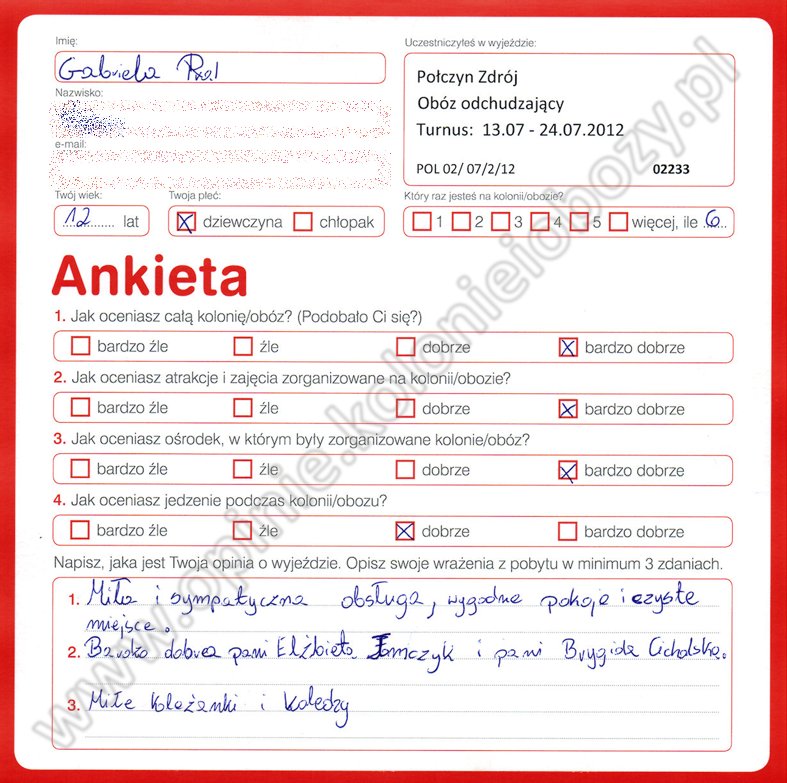 Imię:
Uczestniczyłeś w wyjeździe:
Gabriela
Połczyn Zdrój
Obóz odchudzający
Turnus: 13.07 - 24.07.2012
POL 02/ 07/2/12 02233
Nazwisko:
e-mail:
Twój wiek: Twoja płeć: Który raz jesteś na kolonii/obozie?
12 lat dziewczyna chłopak 1 2 3 4 5 więcej, ile 6
Ankieta
1. Jak oceniasz całą kolonię/obóz? (Podobało Ci się?)
bardzo źle źle dobrze bardzo dobrze
2. Jak oceniasz atrakcje i zajęcia zorganizowane na kolonii/obozie?
bardzo źle źle dobrze bardzo dobrze
3. Jak oceniasz ośrodek, w którym były zorganizowane kolonie/obóz?
bardzo źle źle dobrze bardzo dobrze
4. Jak oceniasz jedzenie podczas kolonii/obozu?
bardzo źle źle dobrze bardzo dobrze
Napisz, jaka jest Twoja opinia o wyjeździe. Opisz swoje wrażenia z pobytu w minimum 3 zdaniach.
1. Miła i sympatyczna obsługa, wygodne pokoje i czyste
miejsce.
2. Bardzo dobra pani Elżbieta Tomczyk i pani Brygida Cichalska.
3. Miłe koleżanki i koledzy
www.opinie.kolonieiobozy.pl